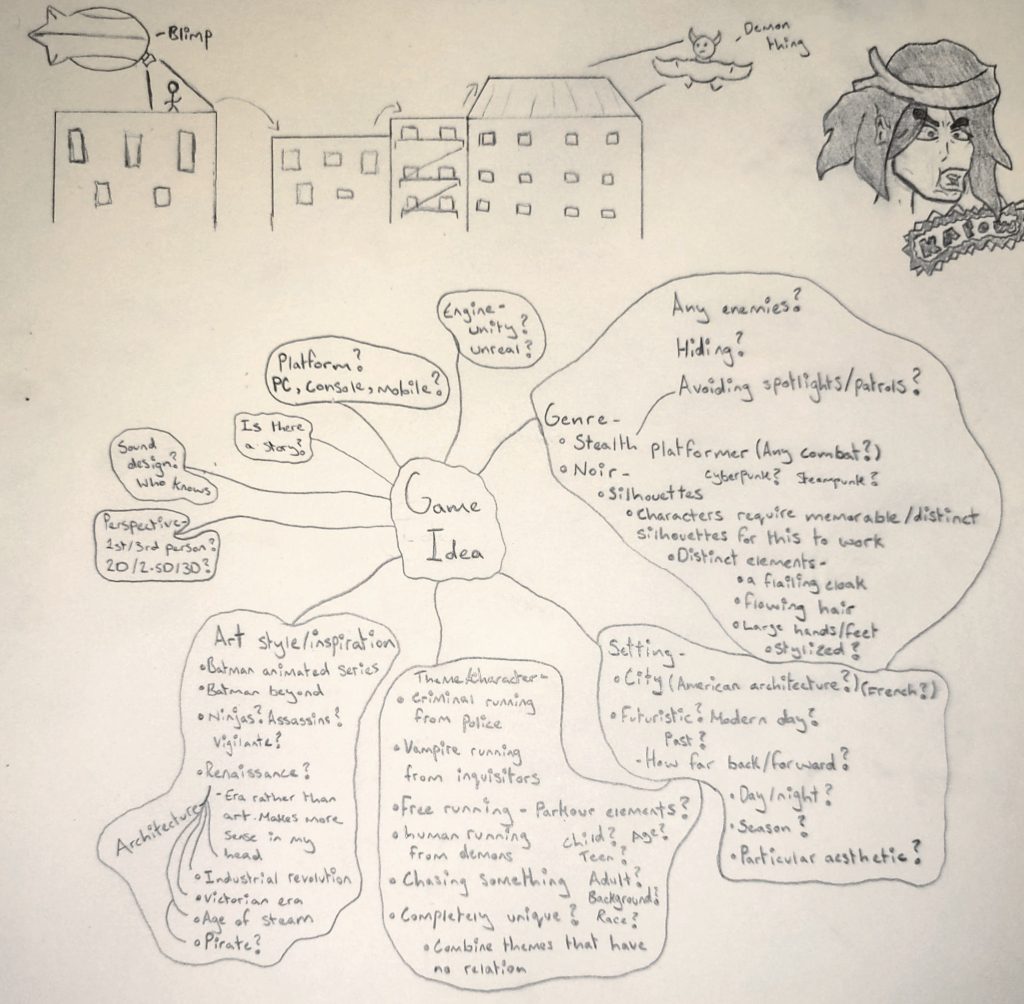 -Blimp
-Demon
thing
KAPOW
Engine-
unity?
unreal?
Platform?
PC, console, mobile?
Is there
a story?
Sound
design?
Who knows
Perspective-
1st/3rd person?
2D/2.5D/3D?
Game
Idea
Any enemies?
Hiding?
Avoiding spotlights/patrols?
Genre-
• Stealth platformer (Any combat?)
• Noir- Cyberpunk? Steampunk?
• Silhouettes
• Characters require memorable/distinct
silhouettes for this to work
• Distinct elements-
• a flailing cloak
• flowing hair
• Large hands/feet
• Stylized?
Art style/inspiration
• Batman animated series
• Batman beyond
• Ninjas? Assassins?
Vigilante?
• Renaissance?
- Era rather than
art. Makes more
sense in my
head
Architecture
• Industrial revolution
• Victorian era
• Age of steam
• Pirate?
Theme/Character-
• Criminal running
from police
• Vampire running
from inquisitors
• Free running - Parkour elements?
• human running
from demons
Child? Age?
Teen?
• Chasing something
Adult?
Background?
• Completely unique?
Race?
• Combine themes that have
no relation
Setting-
• City (American architecture?) (French?)
• Futuristic? Modern day?
Past?
- How far back/forward?
• Day/night?
• Season?
• Particular aesthetic?